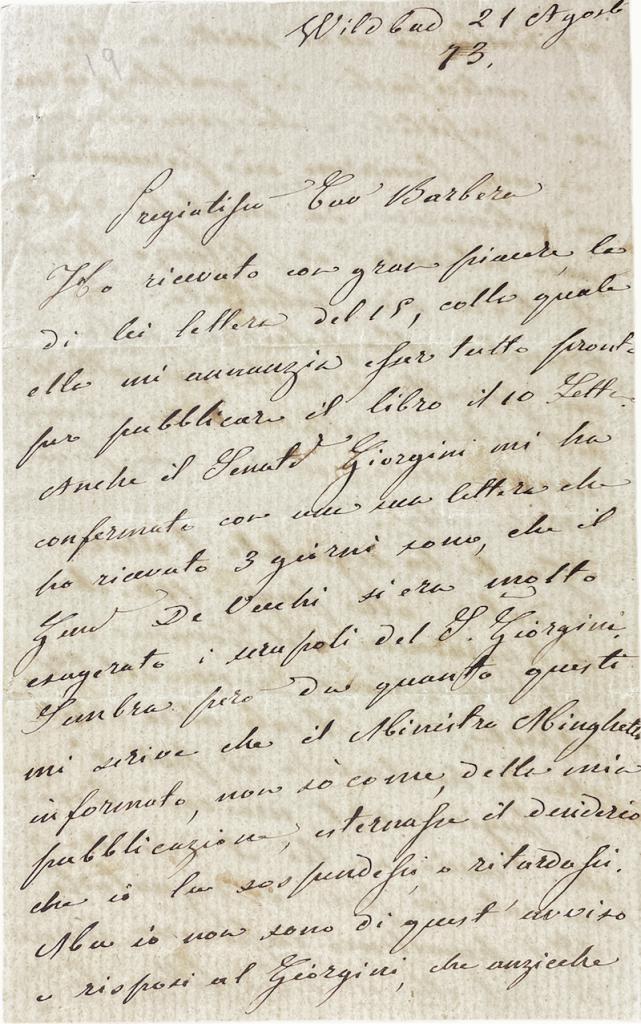 19
Wildbad 21 Agosto
73.
Pregiatissi Cav Barbera
Ho ricevuto con gran piacere la
di lei lettera del 15, colla quale
ella mi annunzia esser tutto pronto
per pubblicare il libro il 10 Sette.
Anche il Senatr Giorgini mi ha
confermato con una sua lettera che
ho ricevuto 3 giorni sono, che il
Genl De Vecchi si era molto
esagerato i scrupoli del S. Giorgini.
Sembra però da quanto questi
mi scrive che il Ministro Minghetti
informato, non sò come, della mia
pubblicazione, esternasse il desiderio
che io la sospendessi, o ritardassi.
Ma io non sono di quest' avviso
e risposi al Giorgini, che anzicche